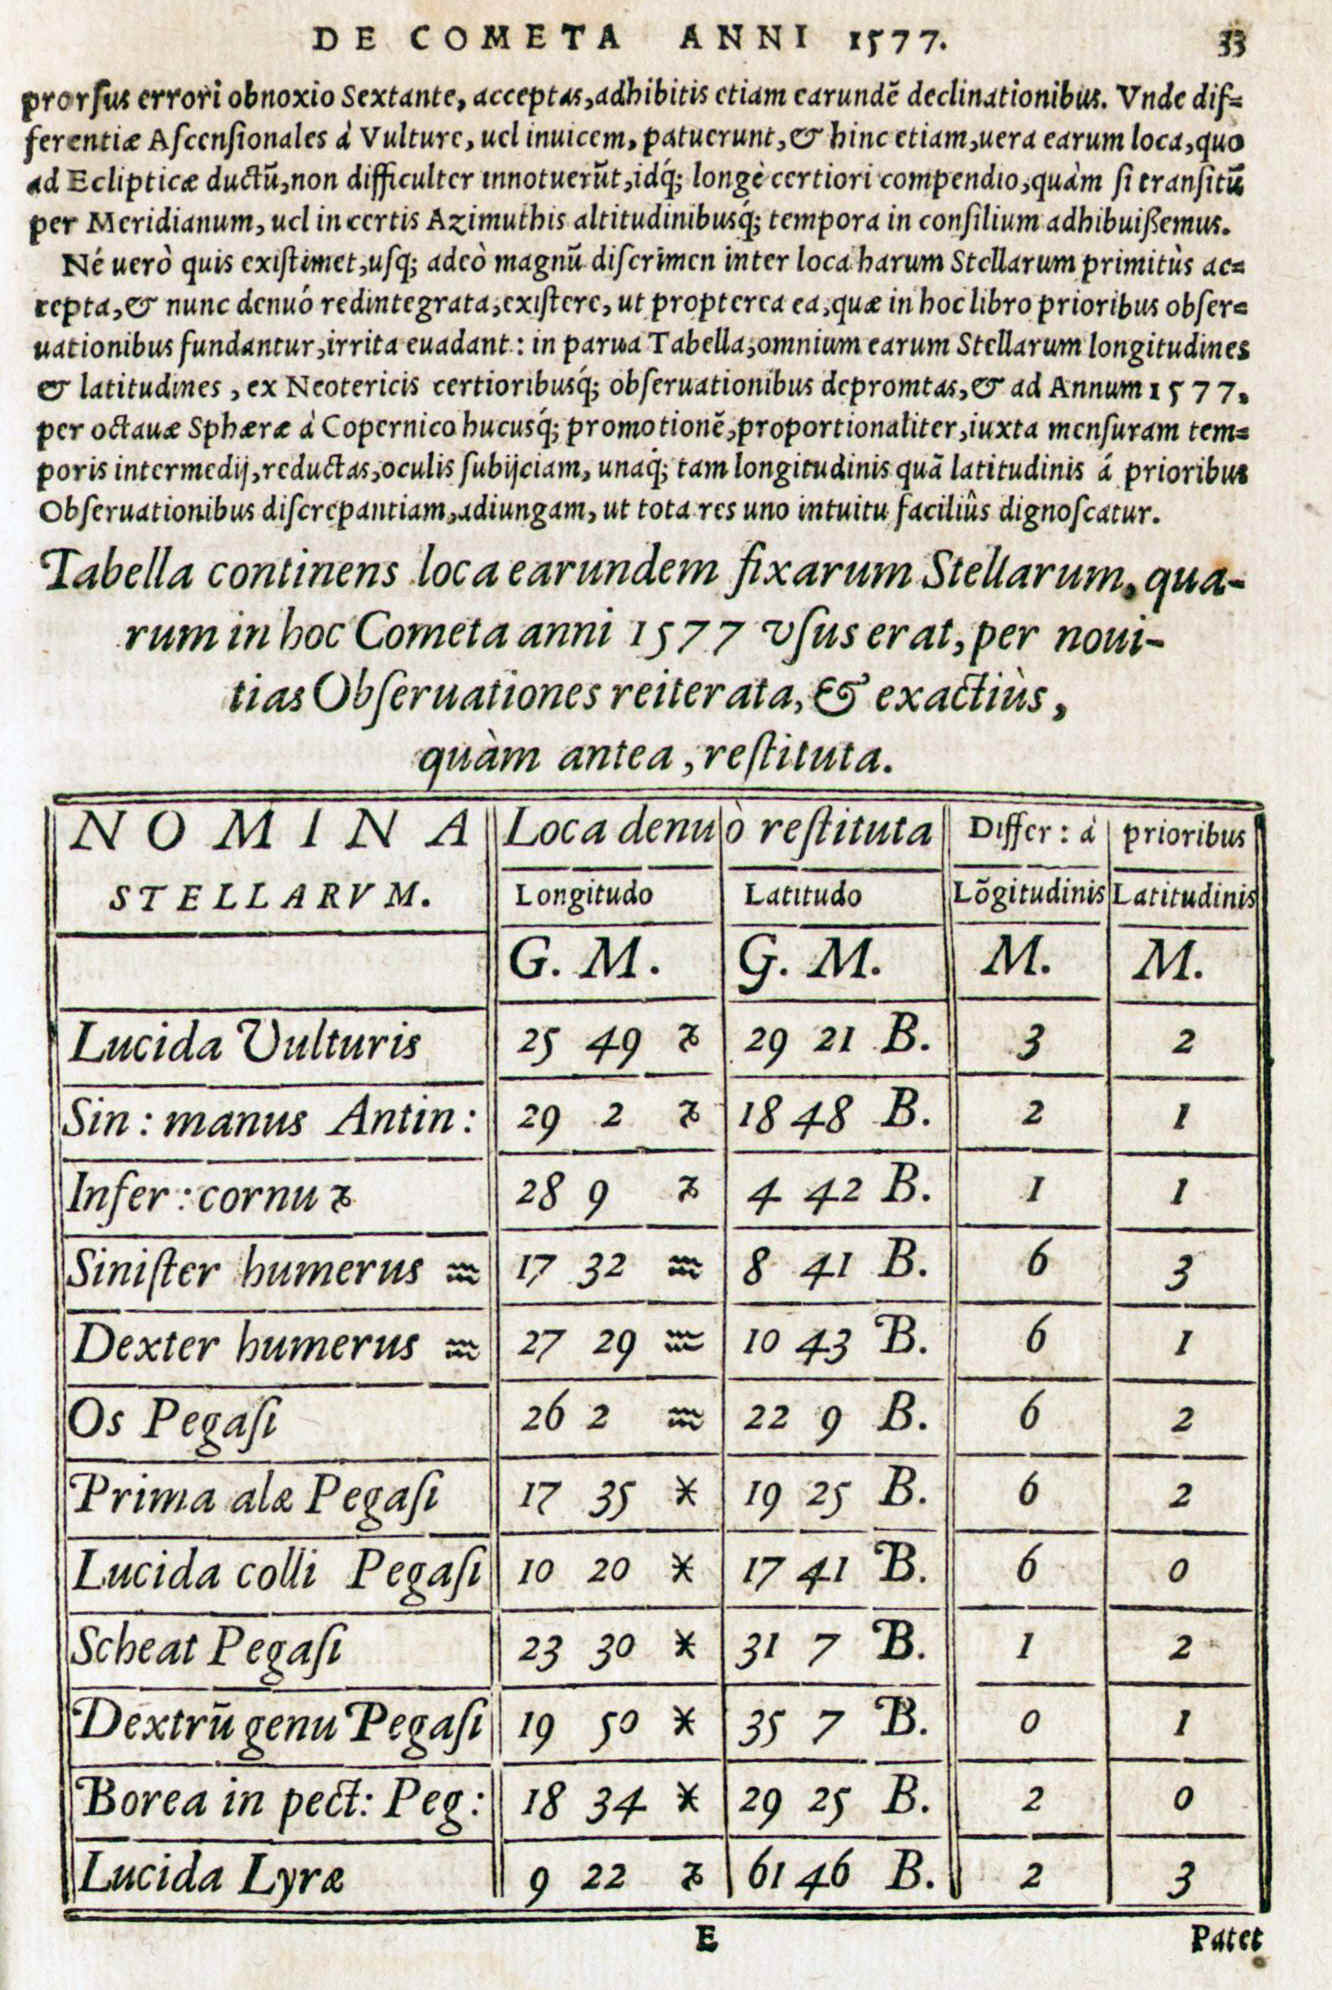 DE COMETA ANNI 1577. 33
prorſus errori obnoxio Sextante, acceptas, adhibitis etiam earundē declinationibus. Vnde dif=
ferentiæ Aſcenſionales à Vulture, uel inuicem, patuerunt, & hinc etiam, uera earum loca, quo
ad Eclipticæ ductū, non difficulter innotuerūt, idq́; longè certiori compendio, quàm ſi tranſitū
per Meridianum, uel in certis Azimuthis altitudinibusq́; tempora in conſilium adhibuißemus.
Né uerò quis exiſtimet, uſq; adeò magnū diſcrimen inter loca harum Stellarum primitùs ac=
cepta, & nunc denuó redintegrata, exiſtere, ut propterea ea, quæ in hoc libro prioribus obſer=
uationibus fundantur, irrita euadant: in parua Tabella, omnium earum Stellarum longitudines
& latitudines, ex Neotericis certioribusq́; obſeruationibus depromtas, & ad Annum 1577.
per octauæ Sphæræ à Copernico hucusq́; promotionē, proportionaliter, iuxta menſuram tem=
poris intermedij, reductas, oculis ſubijciam, unaq́; tam longitudinis quā latitudinis á prioribus
Obſeruationibus diſcrepantiam, adiungam, ut tota res uno intuitu faciliûs dignoſcatur.
Tabella continens loca earundem fixarum Stellarum, qua-
rum in hoc Cometa anni 1577 vſus erat, per noui-
tias Obſeruationes reiterata, & exactiùs,
quàm antea, reſtituta.
NOMINA Loca denuò reſtituta Differ: à prioribus
STELLARVM. Longitudo Latitudo Lōgitudinis Latitudinis
G. M. G. M. M. M.
Lucida Vulturis 25 49 ♑ 29 21 B. 3 2
Sin: manus Antin: 29 2 ♑ 18 48 B. 2 1
Infer: cornu ♑ 28 9 ♑ 4 42 B. 1 1
Siniſter humerus ♒ 17 32 ♒ 8 41 B. 6 3
Dexter humerus ♒ 27 29 ♒ 10 43 B. 6 1
Os Pegaſi 26 2 ♒ 22 9 B. 6 2
Prima alæ Pegaſi 17 35 ♓ 19 25 B. 6 2
Lucida colli Pegaſi 10 20 ♓ 17 41 B. 6 0
Scheat Pegaſi 23 30 ♓ 31 7 B. 1 2
Dextrū genu Pegaſi 19 50 ♓ 35 7 B. 0 1
Borea in pect: Peg: 18 34 ♓ 29 25 B. 2 0
Lucida Lyræ 9 22 ♑ 61 46 B. 2 3
E Patet